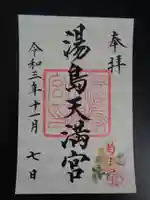 奉拝
湯島天満宮
令和三年十一月七日